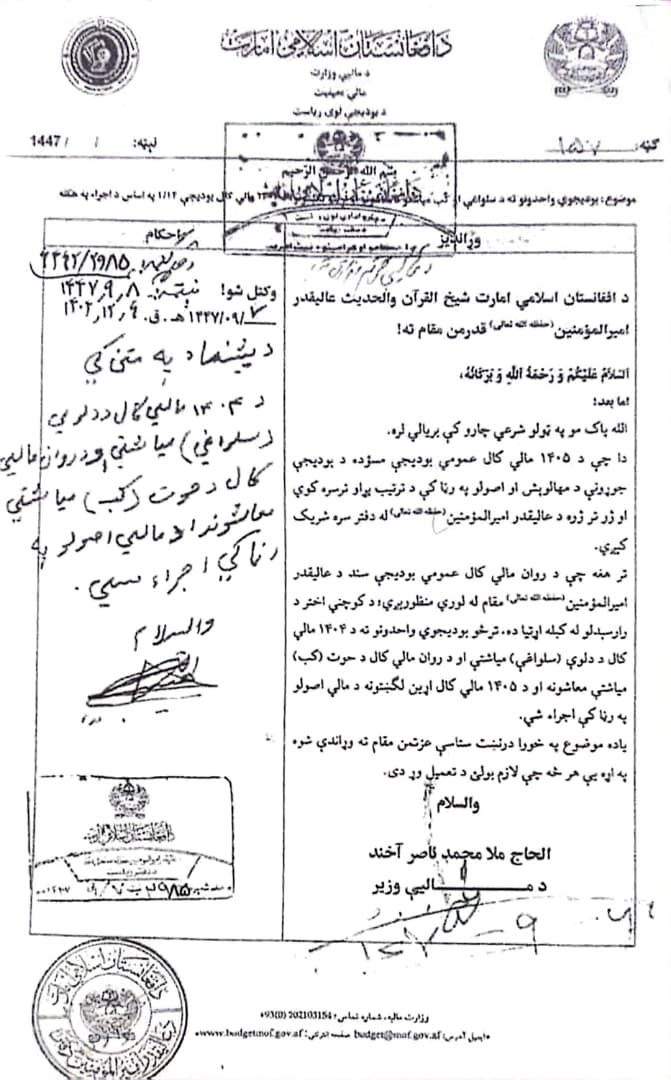 د افغانستان اسلامي امارت
د ماليې وزارت
مالي معينيت
د بوديجې لوی رياست
ګڼه: ۱۵۷
نېټه: / / 1447
بسم الله الرحمن الرحيم
موضوع: بوديجوي واحدونو ته د سلواغې او کب مياشتو مالي کال بوديجې ۱/۱۲ په اساس د اجراء په هکله
وړانديز
د افغانستان اسلامي امارت شيخ القرآن والحديث عاليقدر
اميرالمؤمنين (حفظه الله تعالی) قدرمن مقام ته!
اَلسَّلامُ عَلَيْکُمْ وَ رَحْمَةُ اللهِ وَ بَرَکَاتُهُ،
اما بعد!
الله پاک مو په ټولو شرعي چارو کې بريالي لره.
دا چې د ۱۴۰۵ مالي کال عمومي بوديجې مسؤده د بوديجې
جوړونې د مهالوېش او اصولو په رڼا کې د ترتيب پړاو ترسره کوي
او ژر تر ژره د عاليقدر اميرالمؤمنين (حفظه الله تعالی) له دفتر سره شريک
کيږي.
تر هغه چې د روان مالي کال عمومي بوديجې سند د عاليقدر
اميرالمؤمنين (حفظه الله تعالی) مقام له لوري منظورېږي؛ د کوچني اختر د
رارسېدلو له کبله اړتيا ده، ترڅو بوديجوي واحدونو ته د ۱۴۰۴ مالي
کال د دلوې (سلواغې) مياشتې او د روان مالي کال د حوت (کب)
مياشتې معاشونه او د ۱۴۰۵ مالي کال اړين لګښتونه د مالي اصولو
په رڼا کې اجراء شي.
ياده موضوع په خورا درنښت ستاسې عزتمن مقام ته وړاندې شوه
په اړه يې هر څه چې لازم بولئ د تعميل وړ دی.
والسلام
الحاج ملا محمد ناصر آخند
د ماليې وزير
احکام
۲۹۸۵
وکتل شو!
۱۴۴۷/۰۹/۷ هـ.ق.
د پيشنهاد په متن کې
د ۱۴۰۴ مالي کال د دلوې
(سلواغې) مياشتې او د روان مالي
کال د حوت (کب) مياشتې
معاشونه د مالي اصولو په
رڼا کې اجراء سي.
والسلام
د افغانستان اسلامي امارت
۲۹۸۵
وزارت ماليه، شماره تماس: 202103154 (0)93+
ايميل آدرس: budget@mof.gov.af صفحه انترنتی: www.budgetmof.gov.af